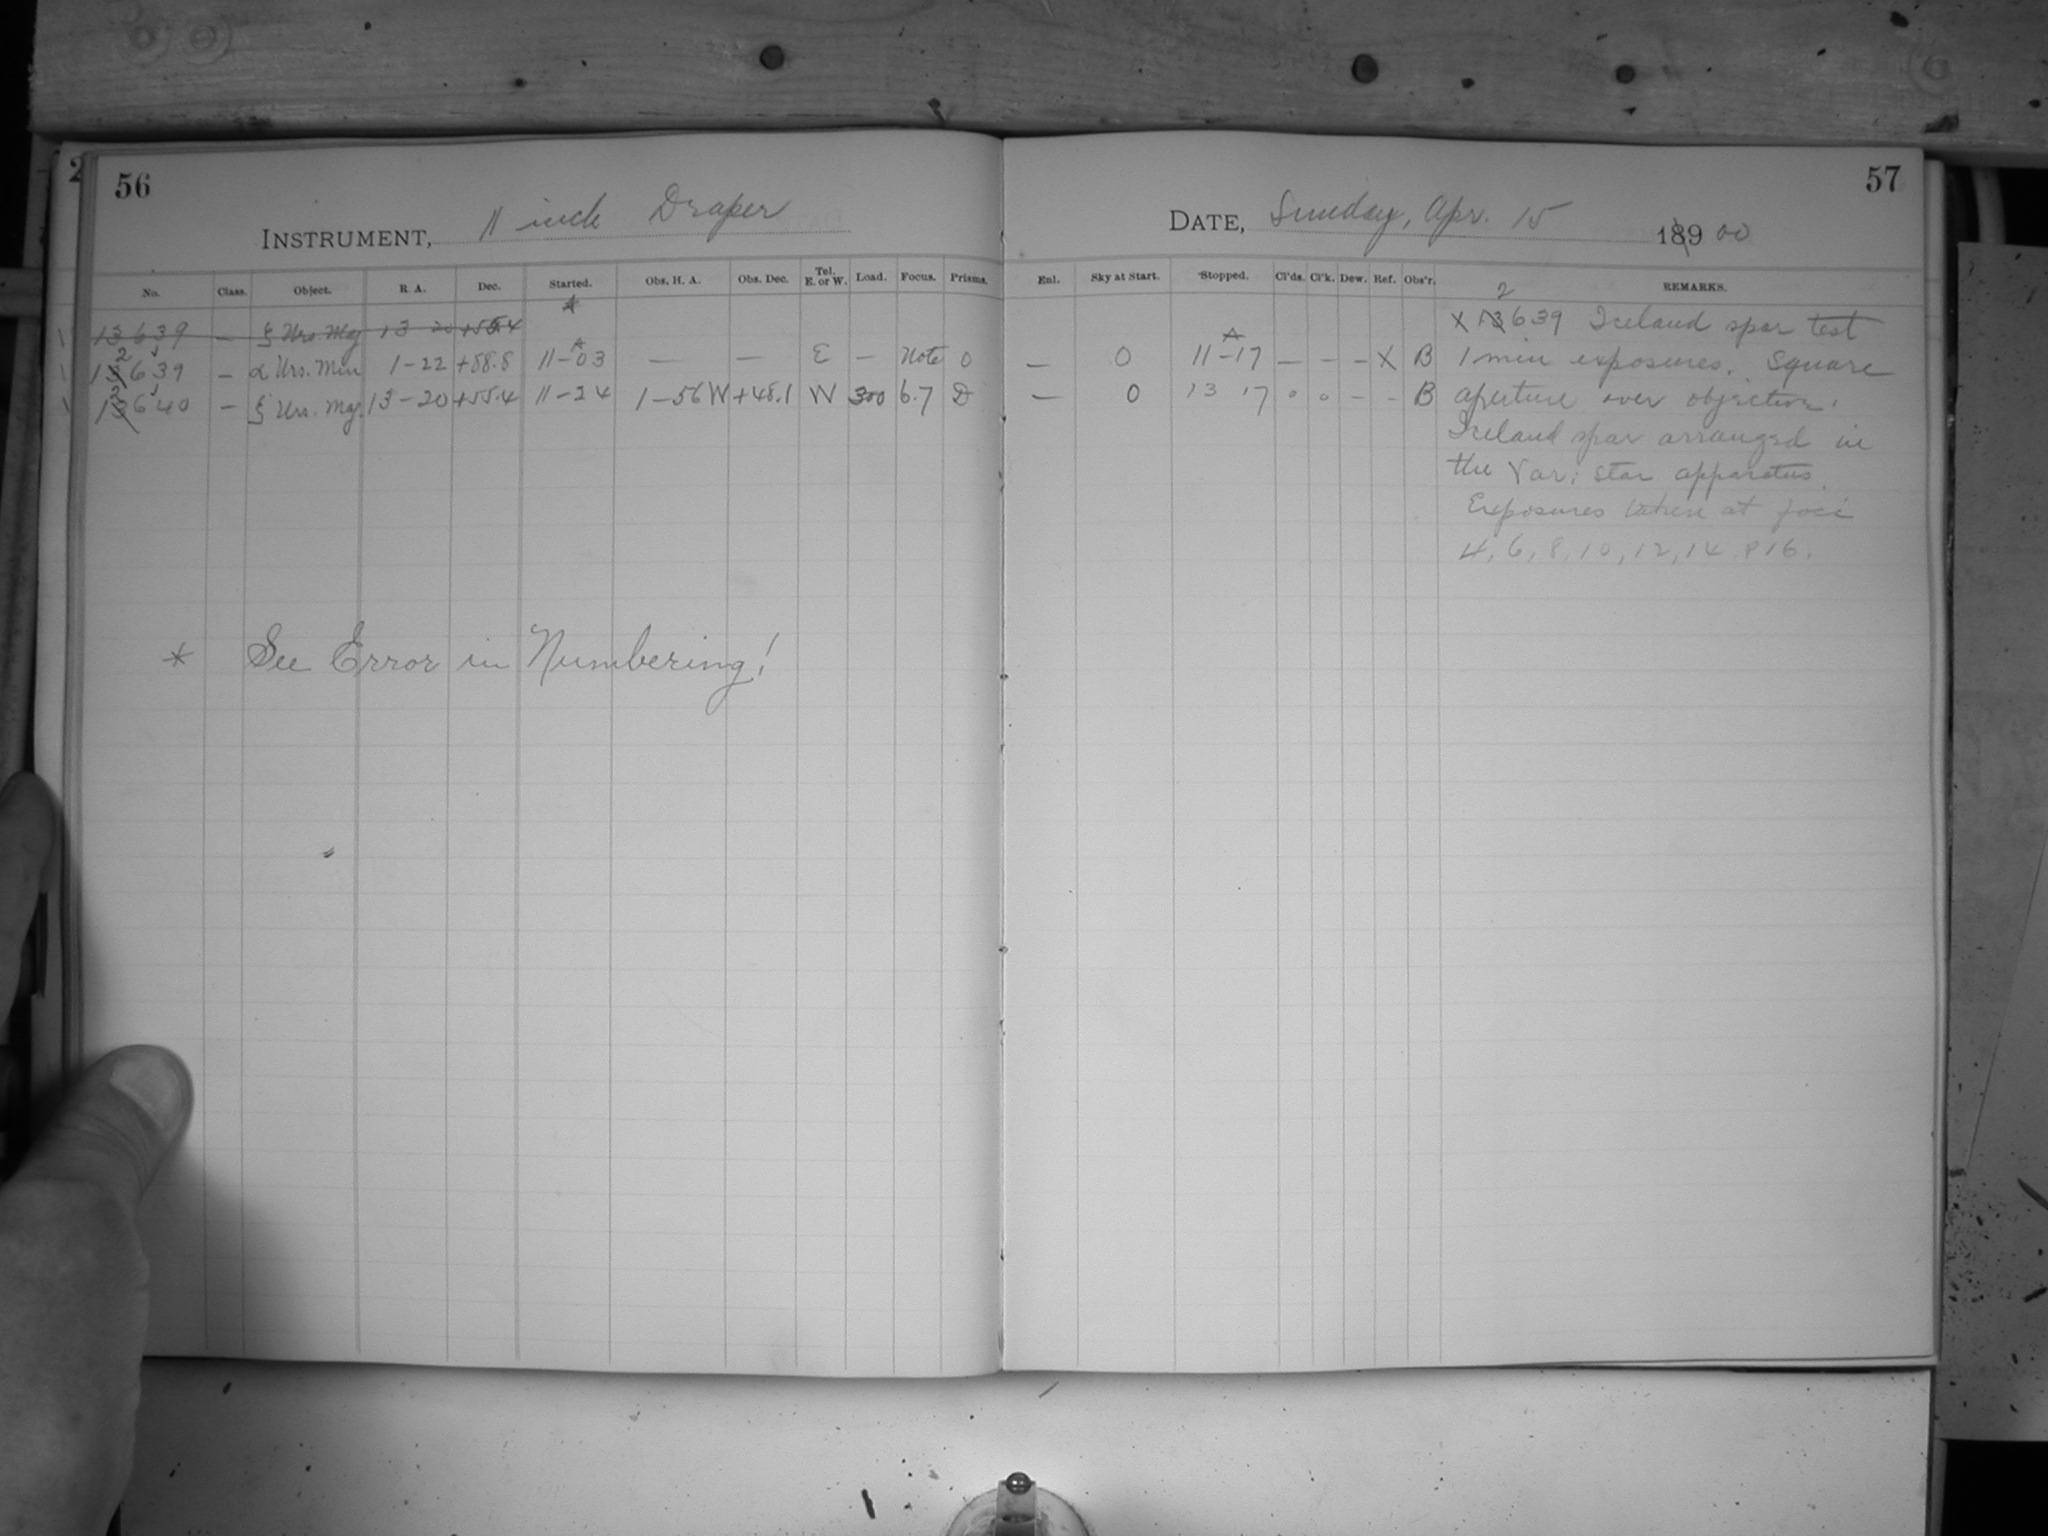 2
56
INSTRUMENT, 11 inch Draper
No. Class. Object. R. A. Dec. Started. Obs. H. A. Obs. Dec. Tel. E. or W. Load. Focus. Prisms.
13639 — ζ Urs. Maj 13 20 +55.4
12639 — α Urs. Min 1-22 +88.8 11-03 — — E — Note 0
12640 — ζ Urs. Maj. 13-20 +55.4 11-24 1-56 W +48.1 W 300 6.7 D
* See Error in Numbering!
57
DATE, Sunday, Apr. 15 189 00
Enl. Sky at Start. Stopped. Cl'ds. Cl'k. Dew. Ref. Obs'r. REMARKS.
— 0 11-17 — — — X B
— 0 13 17 0 0 — - B
X 12639 Iceland spar test
1 min exposures. Square
aperture over objective.
Iceland spar arranged in
the Var. star apparatus.
Exposures taken at foci
4, 6, 8, 10, 12, 14 & 16.